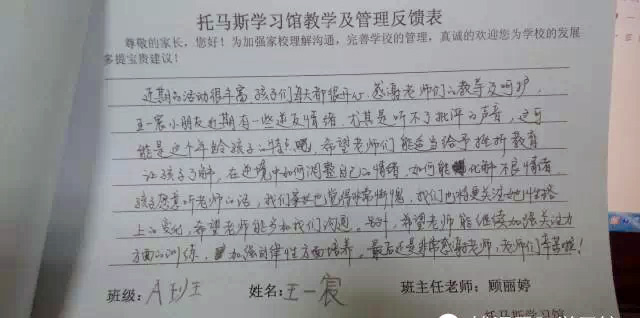 托马斯学习馆教学及管理反馈表
尊敬的家长，您好！为加强家校理解沟通，完善学校的管理，真诚的欢迎您为学校的发展
多提宝贵建议！
近期的活动很丰富，孩子们每天都很开心，感谢老师们的教导及呵护，
王一宸小朋友近期有一些逆反情绪，尤其是听不了批评的声音，这可
能是这个年龄孩子的特点吧，希望老师们能适当给予挫折教育
让孩子了解，在逆境中如何调整自己的情绪，如何能化解不良情绪，
孩子愿意听老师的话，我们家长也觉得非常欣慰，我们也将更关注她性格
上的变化，希望老师能多和我们沟通。另外，希望老师能继续加强关注力
方面的训练，加强自律性方面培养，最后还是非常感谢老师，老师们辛苦啦！
班级：A 姓名：王一宸 班主任老师：顾丽婷
托马斯学习馆